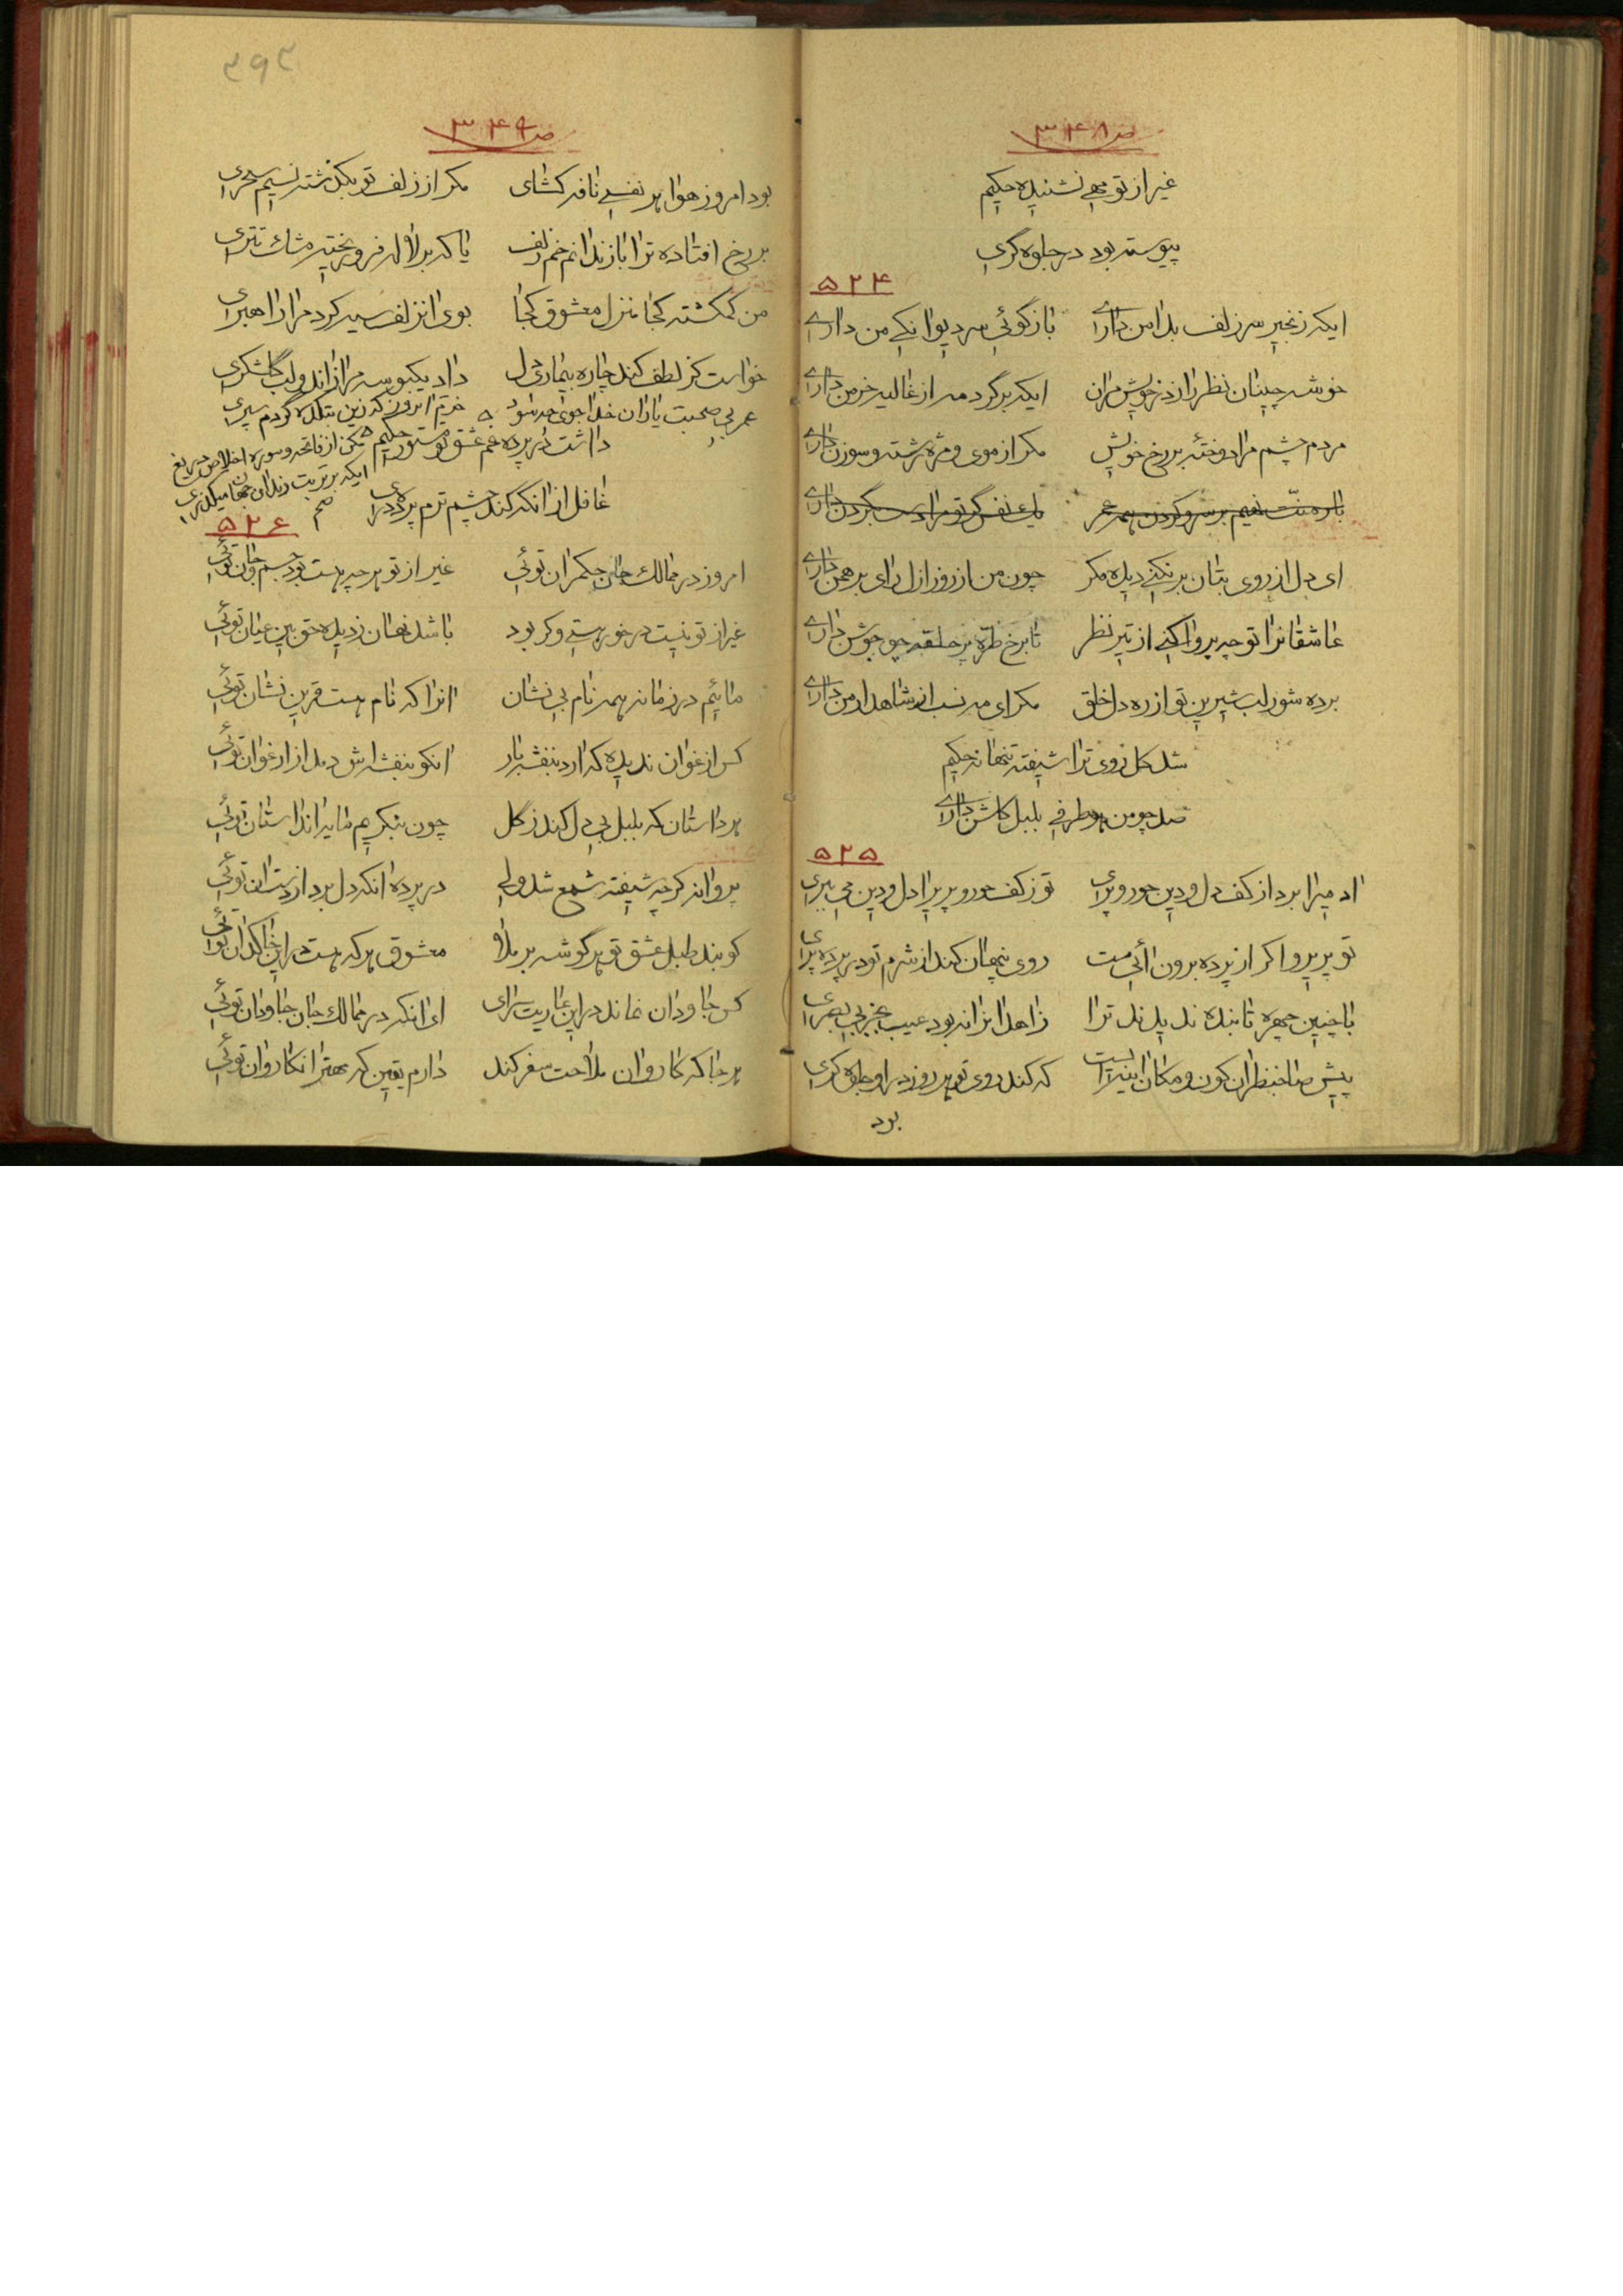 ص ۳۴۸
غیر از تو مهی نشنیده حکیم
پیوسته بود در جلوه گری
۵۲۴
ایکه زنجیر سر زلف بدامن داری
باز گوئی سر دیوانکی من داری
خوشه چینان نظر را ز در خویش مران
ایکه بر گرد مه از غالیه خرمن داری
مردم چشم مرا دوختهٔ بر رخ خویش
مکر از موی و مژه رشته و سوزن داری
بار منت نهیم بر سر و کردن همه عمر
یک نفس گر تو مرا دست بگردن داری
ای دل از روی بتان بر نکنی دیده مکر
چون من از روز ازل رای برهمن داری
عاشقانرا تو چه پروا کنی از تیر نظر
تا برخ طره پر حلقه چو جوشن داری
برده شور لب شیرین تو از ره دل خلق
مکر ای مه نسب از شاهد ارمن داری
شد کل روی ترا شیفته تنها نه حکیم
صد چو من هر طرفی بلبل کلشن داری
۵۲۵
ادمیرا برد از کف دل و دین حور و پری
تو ز کف حور و پریرا دل و دین می ببری
تو پریرو اکر از پرده برون ائی مست
روی پنهان کند از شرم تو در پرده پری
با چنین چهره تابنده ندیدند ترا
زاهدانرا نه بود عیب بجز بی بصری
پیش صاحبنظران کون و مکان اینه ایست
که کند روی تو هر روز در او جلوه کری
بود
۴۹۲
ص ۳۴۹
بود امروز هوا هر نفسی نافه کشای
مکر از زلف تو بکذشته نسیم سحری
بر رخ افتاده ترا باز ندانم خم زلف
یا که بر لاله فرو ریخته مشک تتری
من کمکشته کجا منزل معشوق کجا
بوی انزلف سیه کرد مرا راهبری
خواست کز لطف کند چاره بیماری دل
داد یکبوسه مرا زاندو لب کلشکری
عمر بی صحبت یاران خدا جوی چه سود
خرم انروز که زین بتکده کردم سپری
داشت در پرده غم عشق تو مستور حکیم
غافل از انکه کند چشم ترم پرده دری
مکن از فاتحه و سوره اخلاص دریغ
ایکه بر تربت رندان جهان میکذری
صح
۵۲۶
امروز در ممالک جان حکمران توئی
غیر از تو هر چه هست بود جسم و جان توئی
غیر از تو نیست در خور هستی و کر بود
باشد نهان ز دیده حق بین عیان توئی
مائیم در زمانه همه نام بی نشان
انرا که نام هست قرین نشان توئی
کس ارغوان ندیده که ارد بنفشه بار
انکو بنفشه اش دمد از ارغوان توئی
هر داستان که بلبل بی دل کند ز کل
چون بنکریم مایه انداستان توئی
پروانه کرچه شیفته شمع شد ولی
در پرده انکه دل برد از دستان توئی
کوبند طبل عشق تو هر گوشه بر ملا
معشوق هر که هست در این خاکدان توئی
کس جاودان نماند در این عاریت سرای
ای انکه در ممالک جان جاودان توئی
هر جا که کاروان ملاحت سفر کند
دارم یقین که مهتر انکاروان توئی